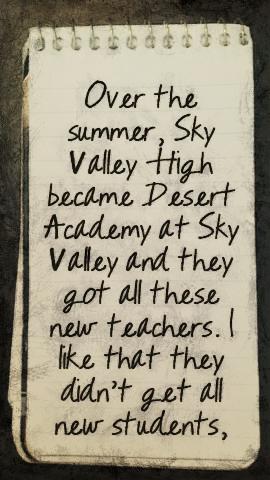 Over the
summer, Sky
Valley High
became Desert
Academy at Sky
Valley and they
got all these
new teachers. I
like that they
didn't get all
new students,